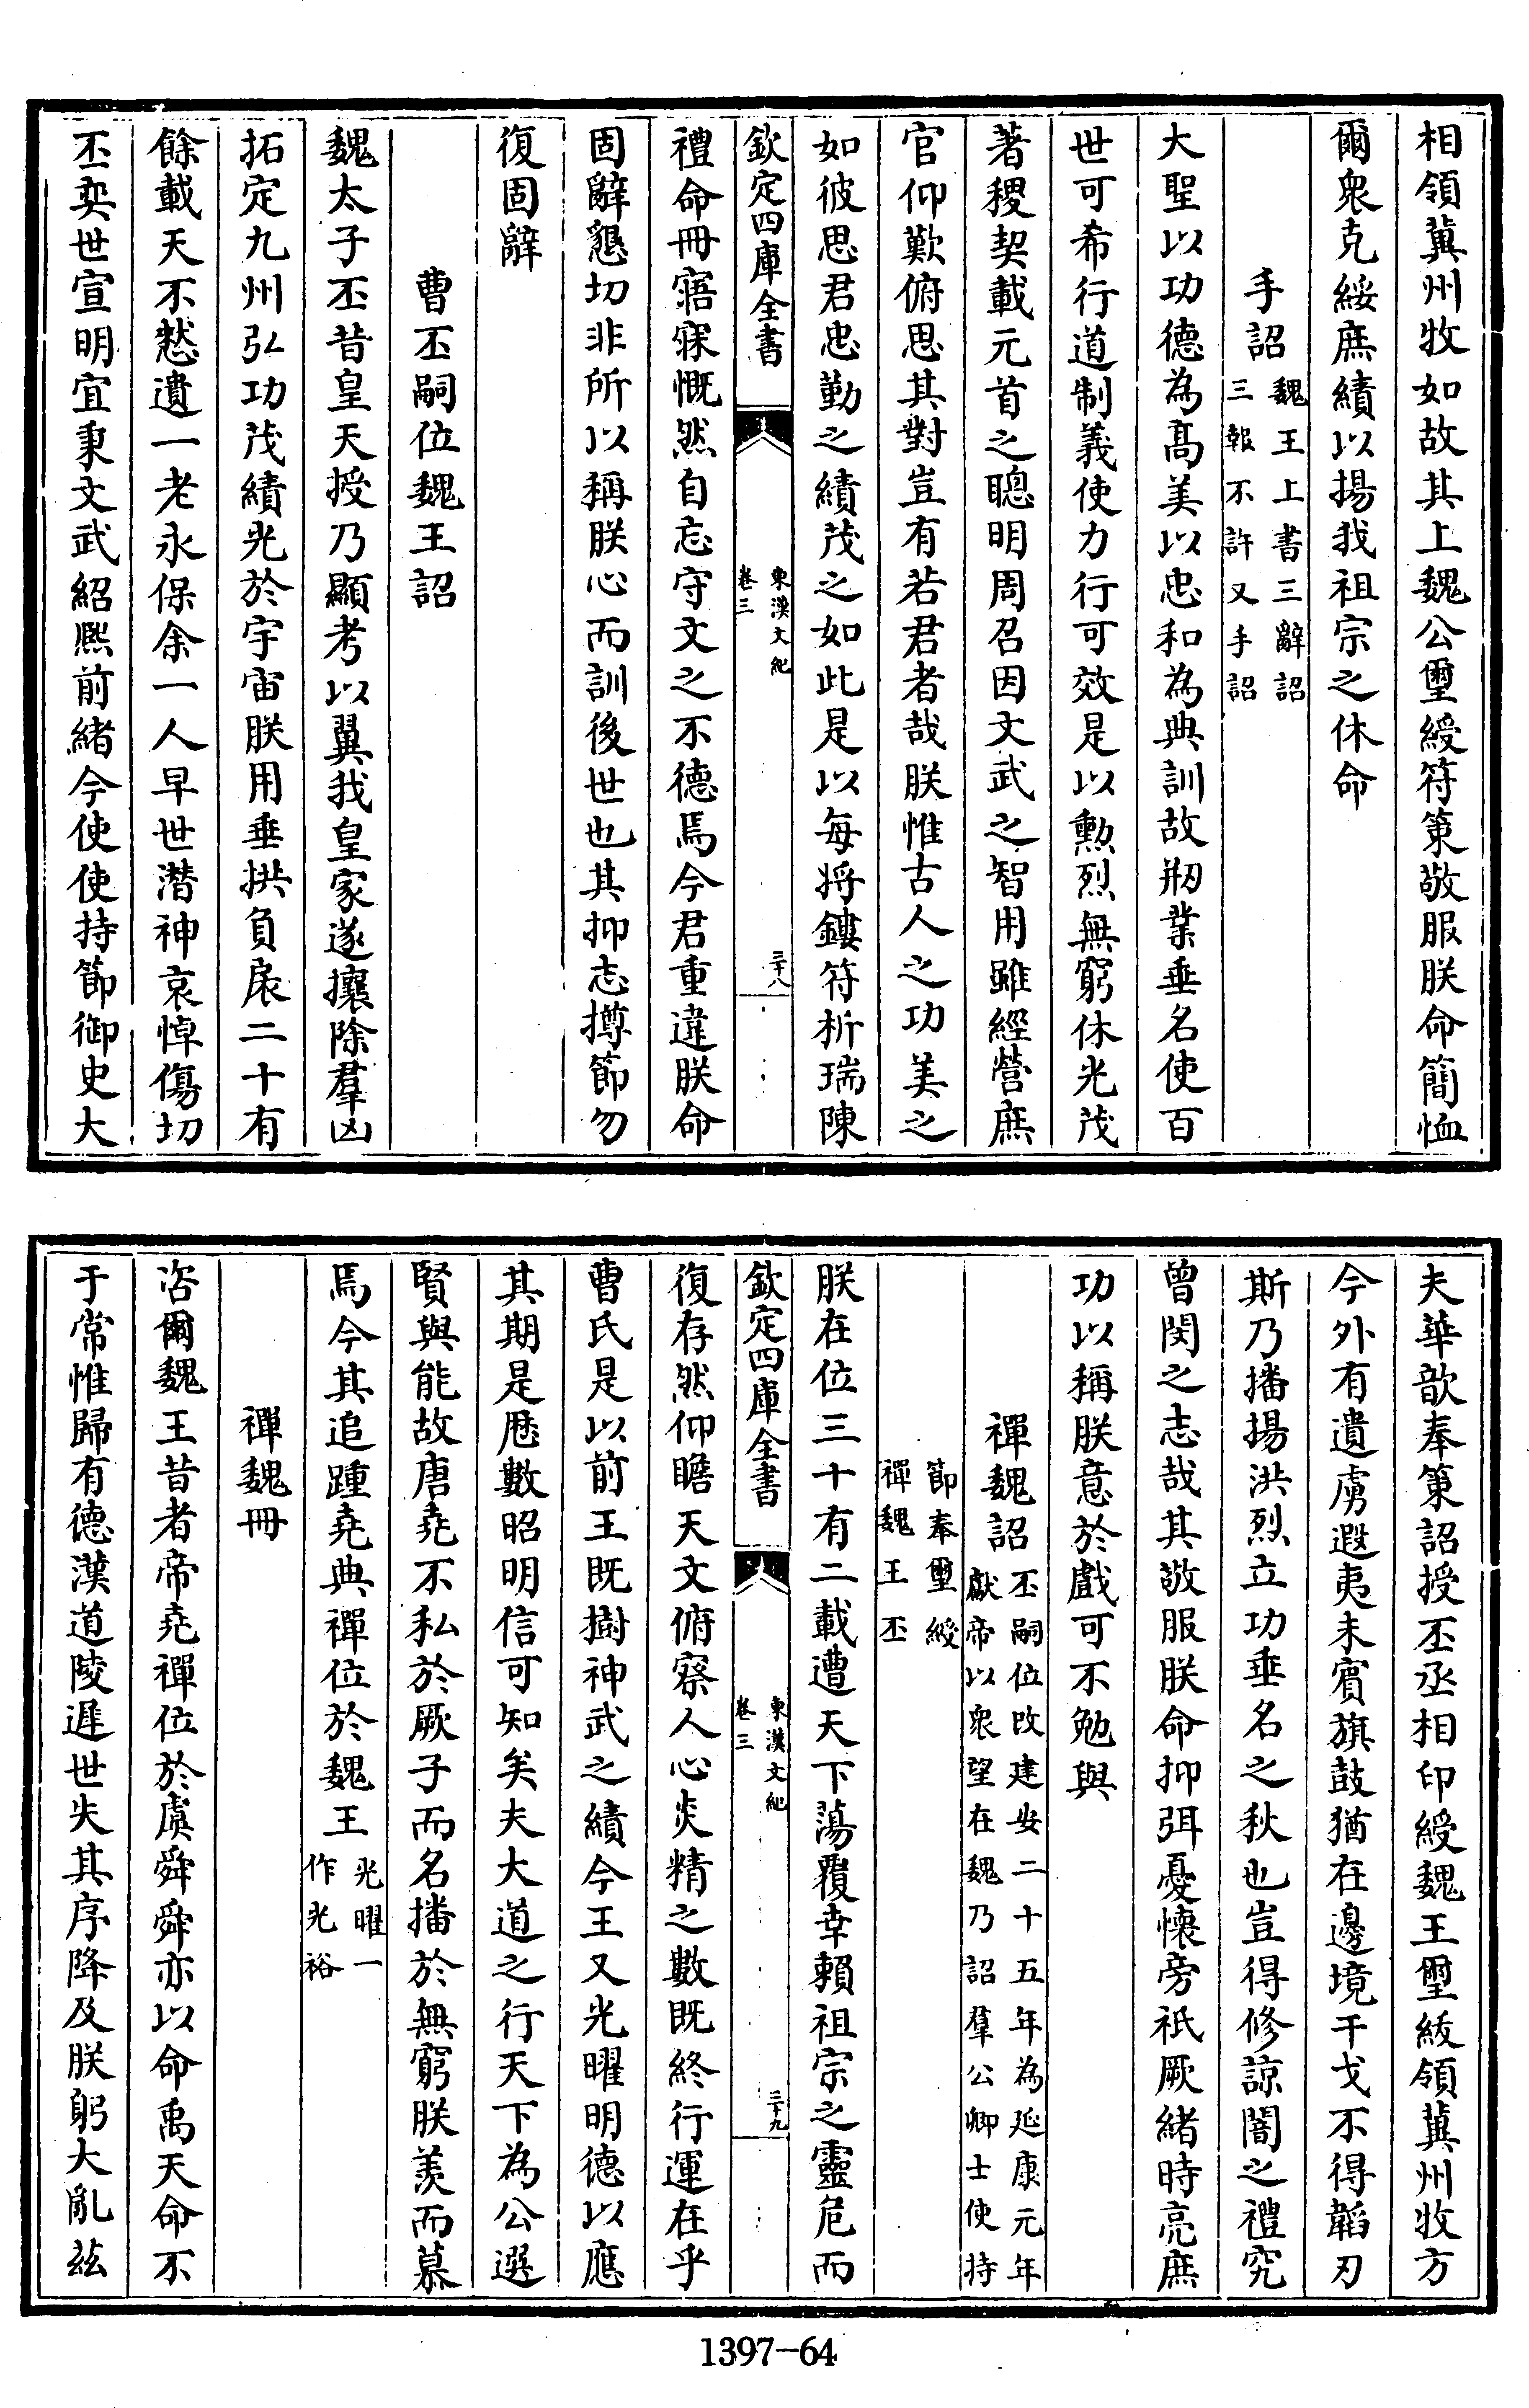 相領冀州牧如故其上魏公璽綬符策敬服朕命簡恤
爾衆克綏庶績以揚我祖宗之休命
手詔魏王上書三辭詔三報不許又手詔
大聖以功德為髙美以忠和為典訓故刱業垂名使百
世可希行道制義使力行可效是以勲烈無窮休光茂
著稷契載元首之聰明周召因文武之智用雖經營庶
官仰歎俯思其對豈有若君者哉朕惟古人之功美之
如彼思君忠勤之績茂之如此是以每將鏤符析瑞陳
欽定四庫全書
東漢文紀
卷三
三十八
禮命冊寤寐慨然自忘守文之不德焉今君重違朕命
固辭懇切非所以稱朕心而訓後世也其抑志撙節勿
復固辭
曹丕嗣位魏王詔
魏太子丕昔皇天授乃顯考以翼我皇家遂攘除羣凶
拓定九州弘功茂績光於宇宙朕用垂拱負扆二十有
餘載天不憖遺一老永保余一人早世潛神哀悼傷切
丕奕世宣明宜秉文武紹熙前緒今使使持節御史大
夫華歆奉策詔授丕丞相印綬魏王璽紱領冀州牧方
今外有遺虜遐夷未賓旗鼓猶在邊境干戈不得韜刃
斯乃播揚洪烈立功垂名之秋也豈得修諒闇之禮究
曾閔之志哉其敬服朕命抑弭憂懷旁祇厥緒時亮庶
功以稱朕意於戲可不勉與
禪魏詔丕嗣位改建安二十五年為延康元年獻帝以衆望在魏乃詔羣公卿士使持
節奉璽綬禪魏王丕
朕在位三十有二載遭天下蕩覆幸賴祖宗之靈危而
欽定四庫全書
東漢文紀
卷三
三十九
復存然仰瞻天文俯察人心炎精之數既終行運在乎
曹氏是以前王既樹神武之績今王又光曜明德以應
其期是厯數昭明信可知矣夫大道之行天下為公選
賢與能故唐堯不私於厥子而名播於無窮朕羨而慕
焉今其追踵堯典禪位於魏王光曜一作光裕
禪魏冊
咨爾魏王昔者帝堯禪位於虞舜舜亦以命禹天命不
于常惟歸有德漢道陵遲世失其序降及朕躬大亂茲
1397-64